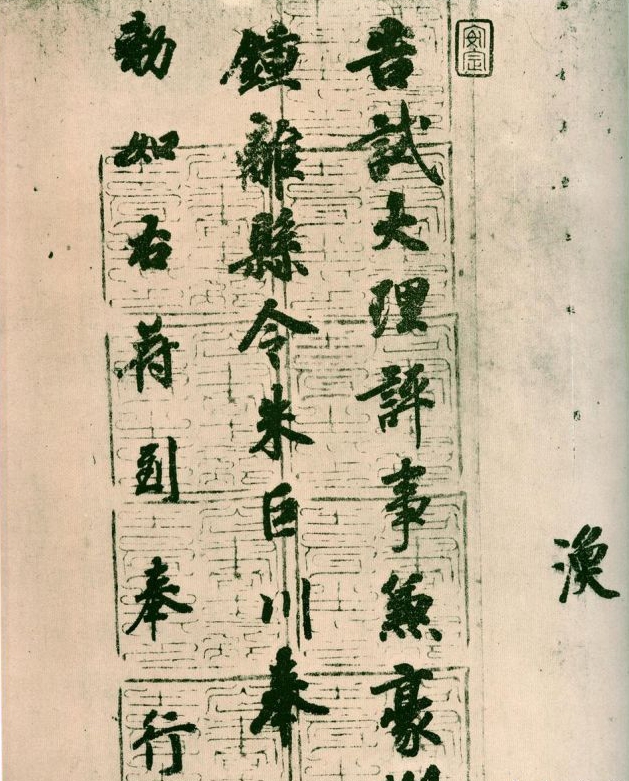 渙
安定
告試大理評事兼豪
鍾離縣令朱巨川奉
勅如右苻到奉行